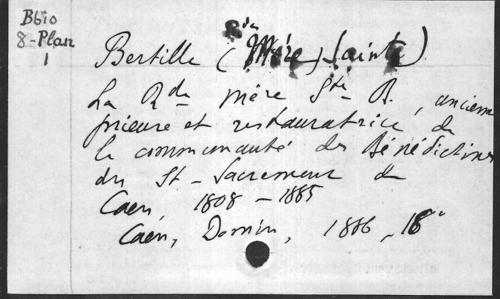 B610
8-Plan
1
Bertille (Rde Mère Sainte)
La Rde mère Ste B., ancienne
prieure et restauratrice de
la communauté des Bénédictines
du St-Sacrement de
Caen, 1808-1885
Caen, Domin, 1886, 18°